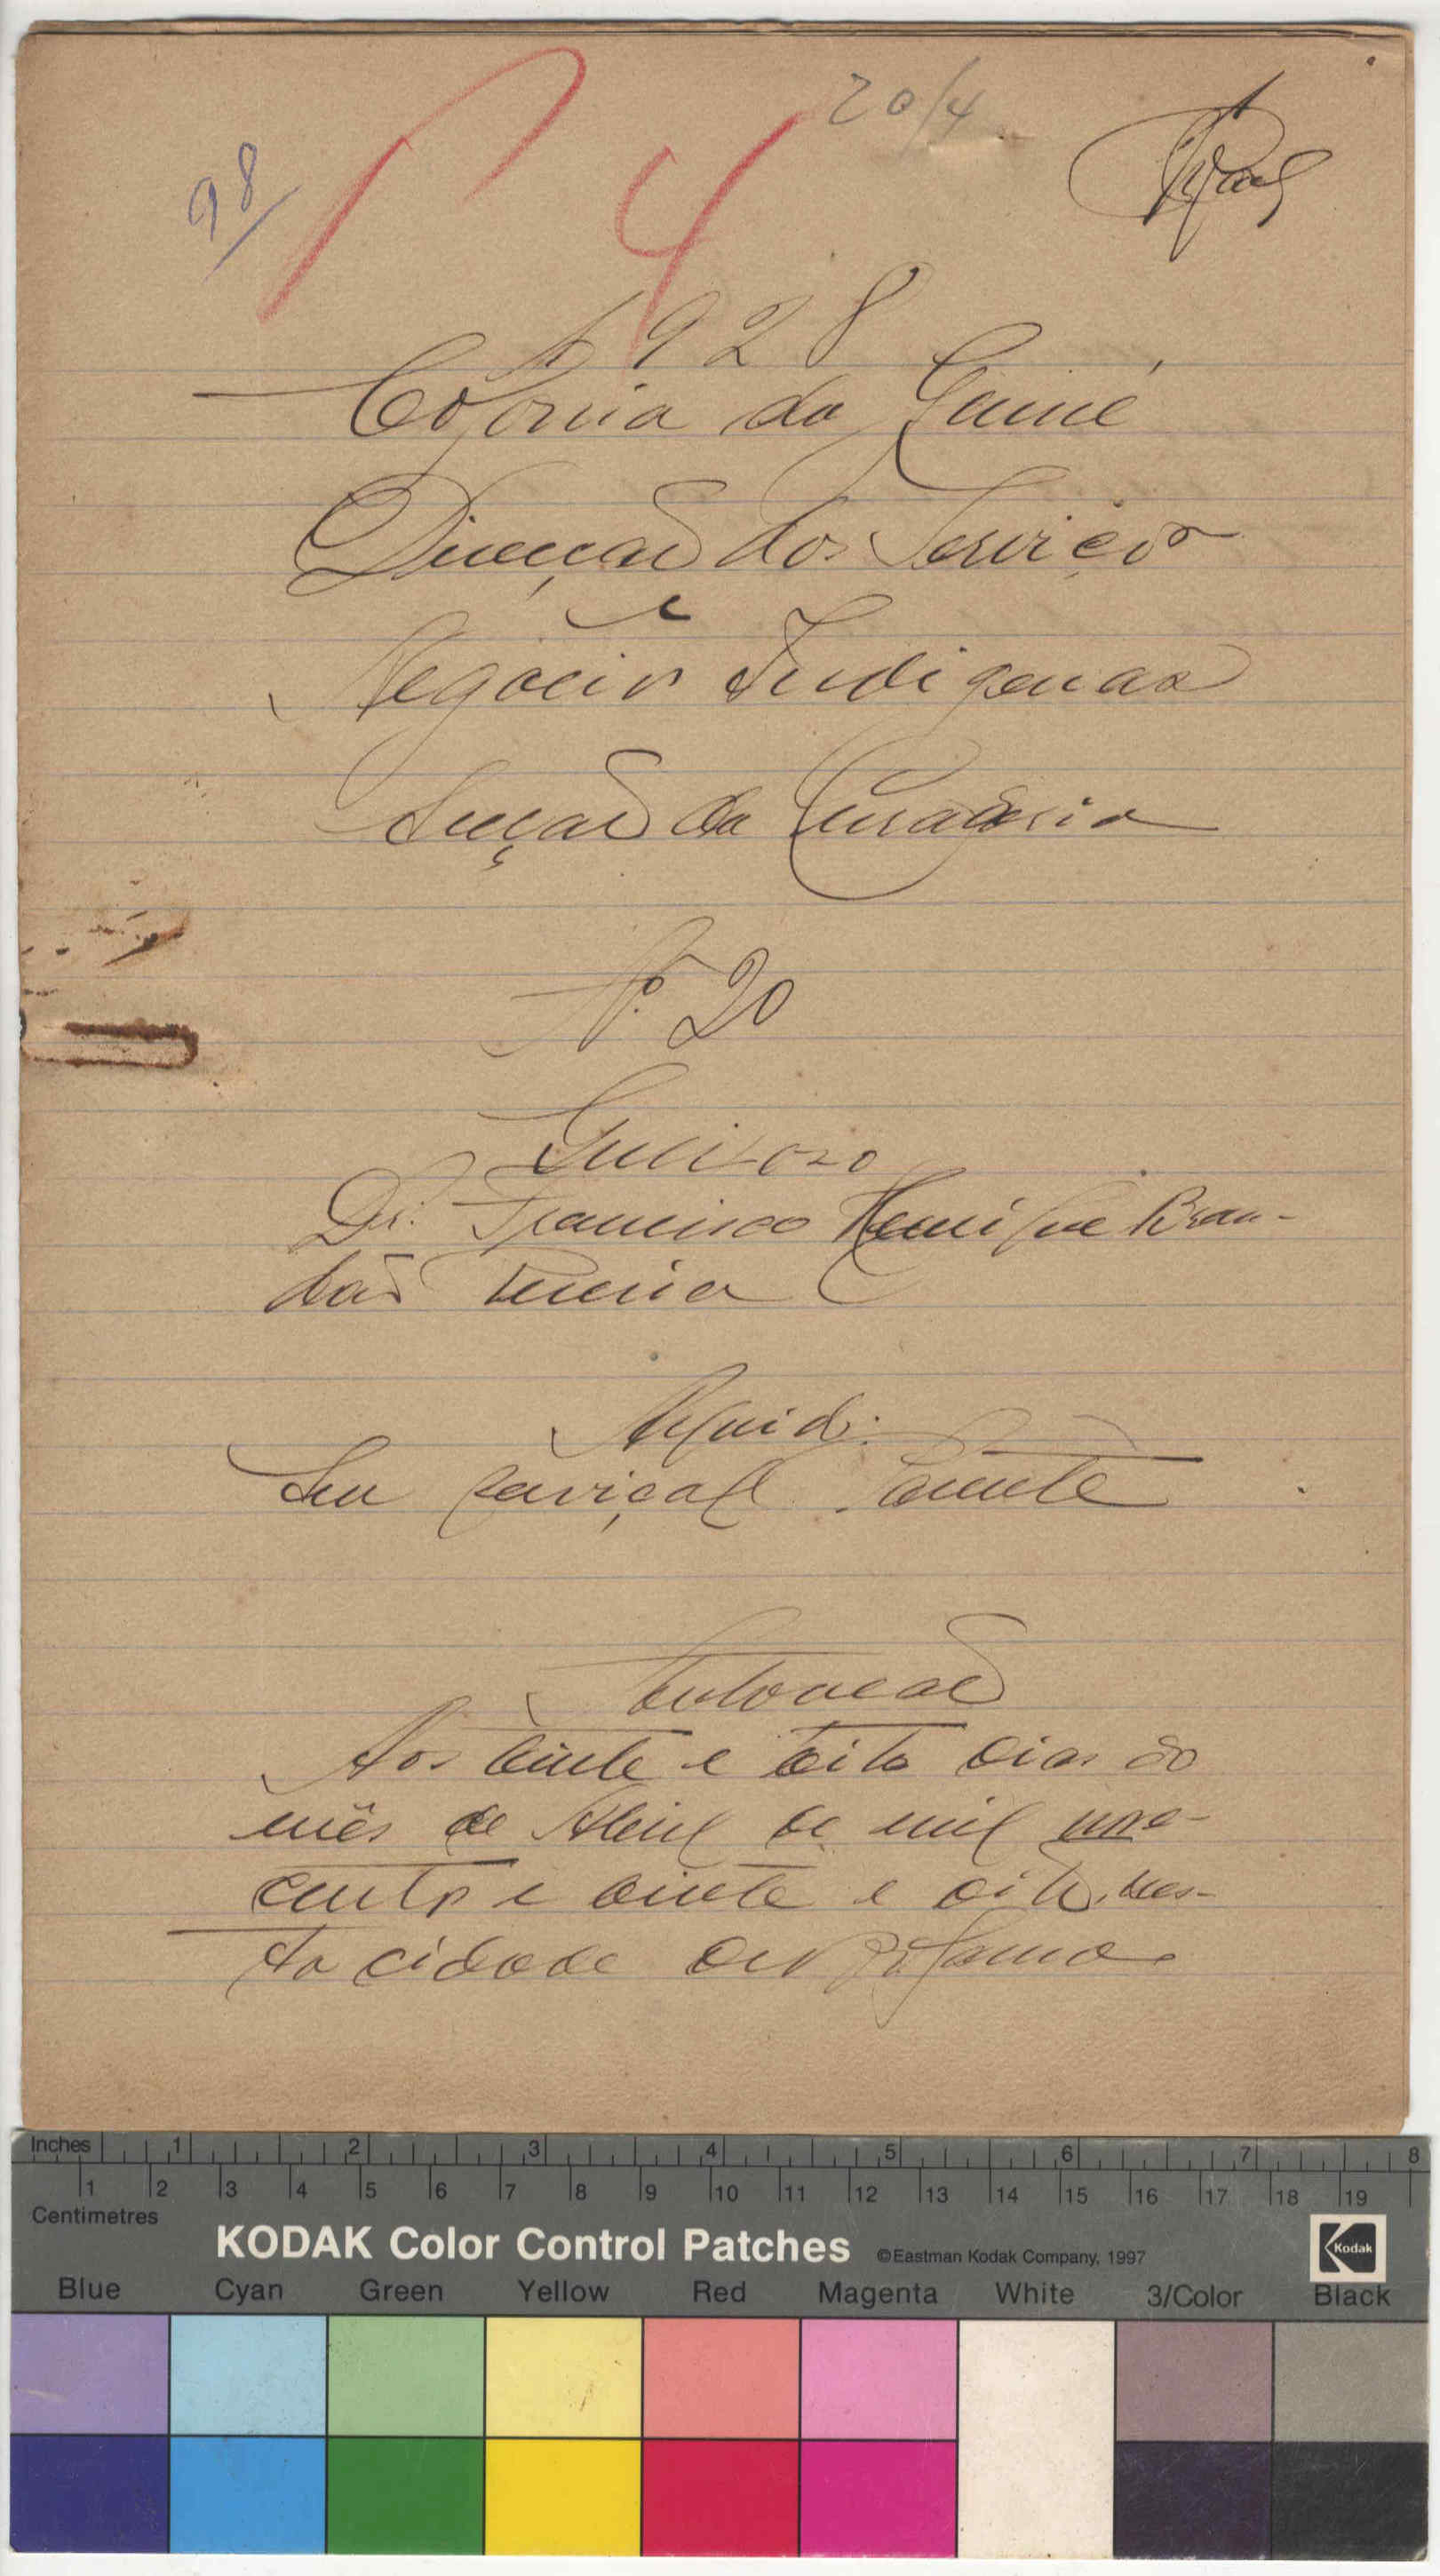 98/
20/4
1928
Colonia da Guiné
Direcção dos Serviços
e
Negocios Indigenas
Secção da Curadoria
Nº 20
Queixoso
Dr. Francisco Henrique Bran-
dão
Arguido:
Seu serviçal
Autoação
Aos vinte e oito dias do
mês de Abril de mil nove-
centos e vinte e oito, nes-
ta cidade de Bolama
Inches 1 2 3 4 5 6 7 8
1 2 3 4 5 6 7 8 9 10 11 12 13 14 15 16 17 18 19
Centimetres
KODAK Color Control Patches ©Eastman Kodak Company, 1997 Kodak
Blue Cyan Green Yellow Red Magenta White 3/Color Black